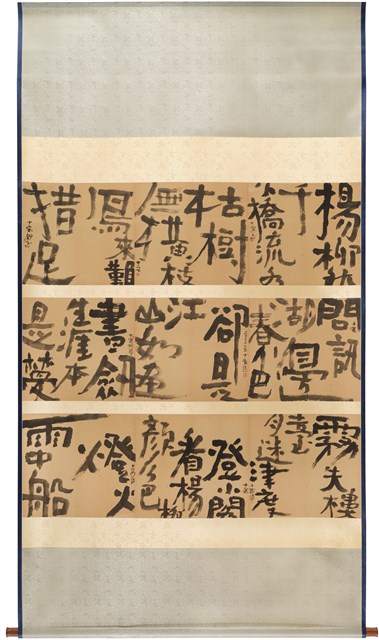 楊柳
千
橋流水
枯樹
本
無橫枝
寫來難
措足
問訊
湖邊
春色
卻是
江
山如
書劍
生涯本
是夢
霧失樓
臺
月迷津度
登閣
看楊柳
顏色
燈火
船